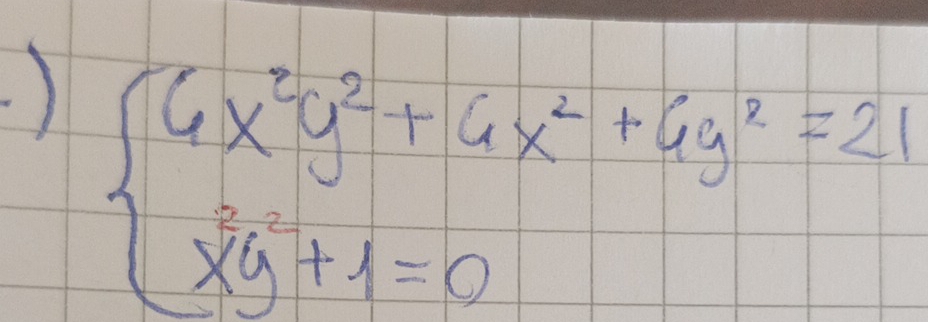 .) { 4x²y² + 4x² + 4y² = 21
x²y² + 1 = 0